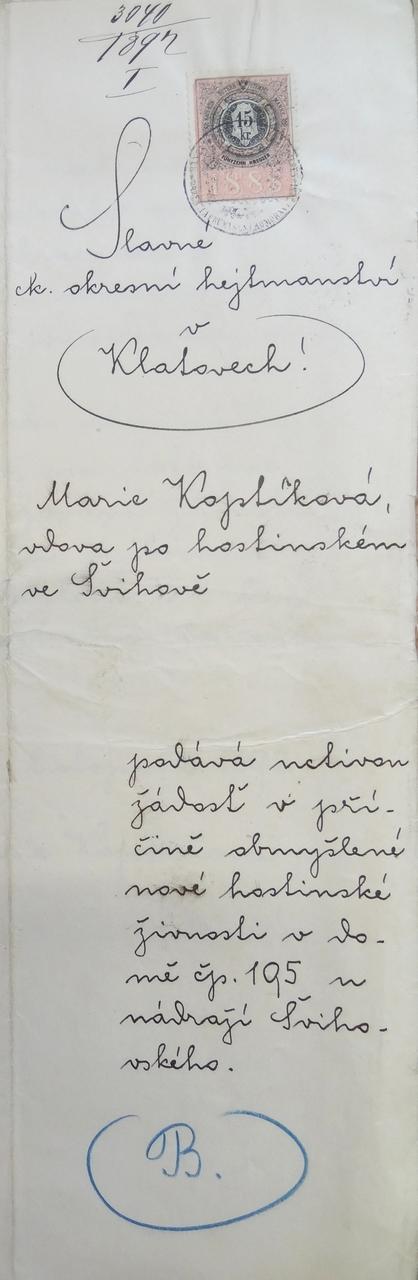 3040
1892
I
15
kr.
FÜNFZEHN KREUZER
188
Slavné
ck. okresní hejtmanství
v
Klatovech!
Marie Koptíková,
vdova po hostinském
ve Švihově
podává uctivou
žádosť v pří-
čině obmyšlené
nové hostinské
živnosti v do-
mě čp. 195 u
nádraží Šviho-
vského.
B.